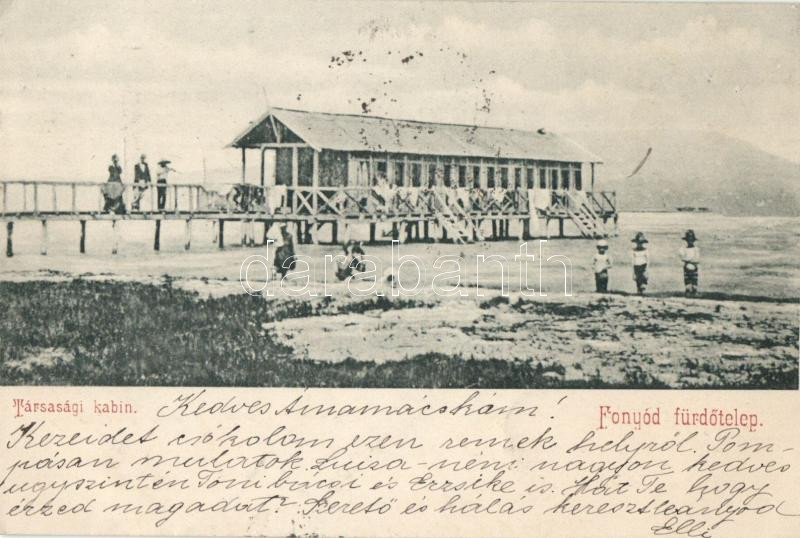 darabanth
Társasági kabin.
Kedves Ámamácskám!
Fonyód fürdőtelep.
Kezeidet csókolom ezen remek helyről. Pom-
pásan mulatok. Luiza-néni nagyon kedves
úgyszintén Toni bácsi és Erzsike is. Hát Te hogy
érzed magadat? Szerető és hálás keresztleányod
Elli